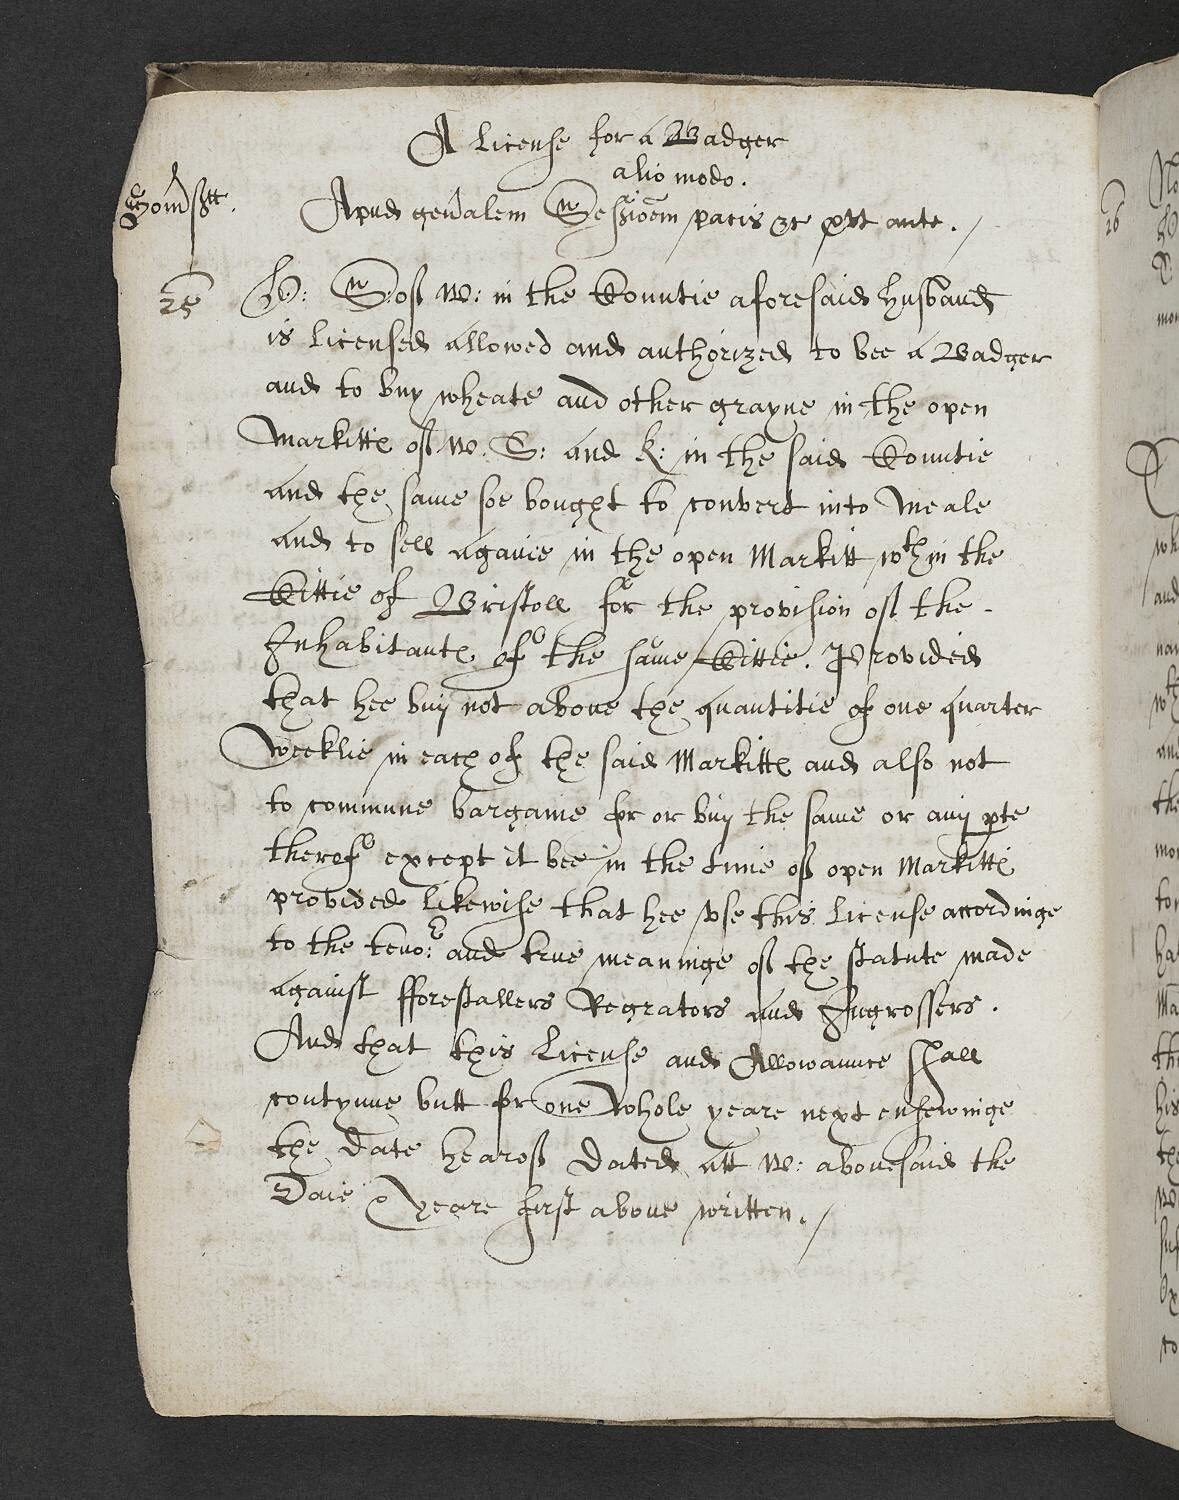 A license for a Badger
alio modo.
Somsett.
Apud gen'alem Sessioem pacis &c put ante.
25
H: S: of W: in the Countie aforesaid husband
is licensed allowed and authorized to bee a Badger
and to buy wheate and other grayne in the open
Markitts of W. G: and K: in the said Countie
and the same soe bought to convert into Meale
and to sell againe in the open Markitt wthin the
Cittie of Bristoll for the provision of the
Inhabitants of the same Cittie. Provided
that hee buy not above the quantitie of one quarter
weeklie in each of the said Markitts and also not
to commune bargaine for or buy the same or any pte
therof except it bee in the time of open Markitts
provided likewise that hee vse this License accordinge
to the teno:r and true meaninge of the statute made
against fforestallers Regrators and Ingrossers.
And that this License and Allowaunce shall
contynue butt for one whole yeare next ensewinge
the date hearof Dated att W: abovesaid the
Daie & yeare first above written.
26